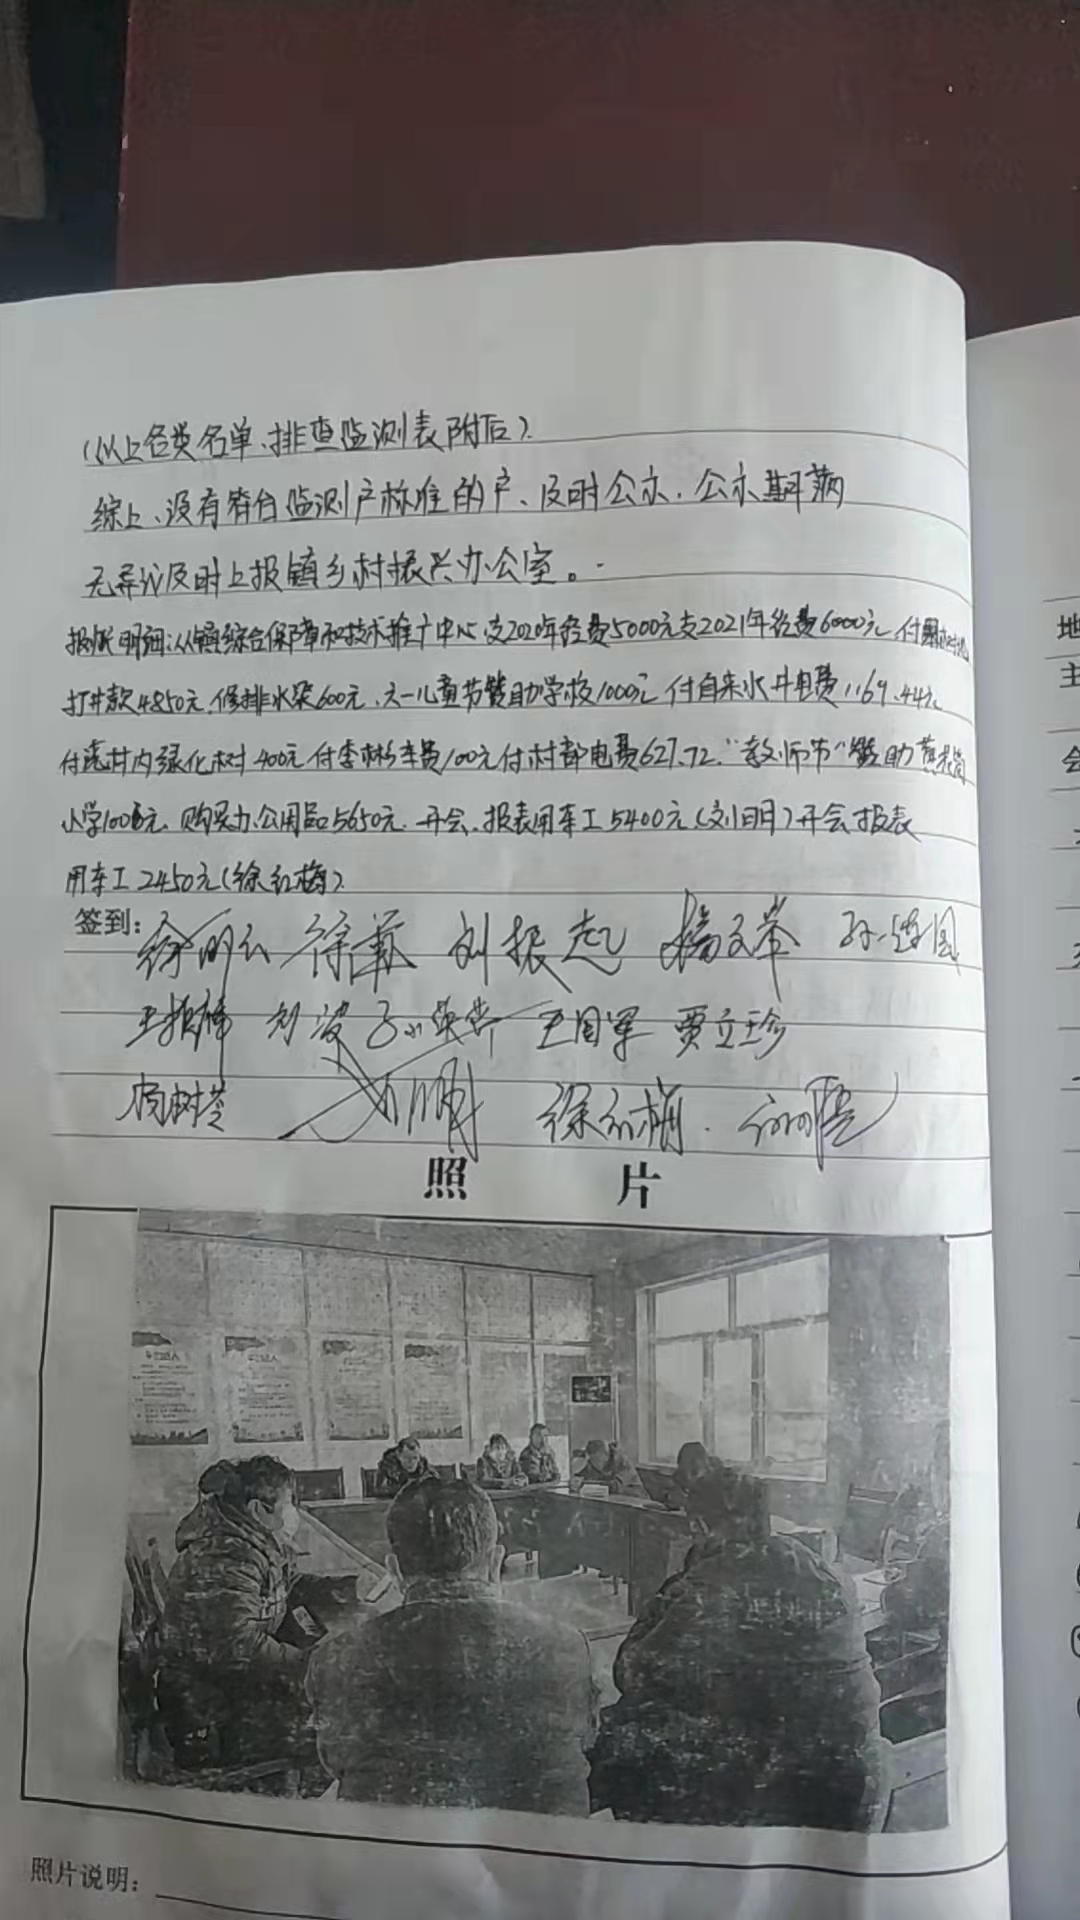 (以上各类名单、排查监测表附后).
综上、没有符合监测户标准的户、及时公示.公示期满
无异议及时上报镇乡村振兴办公室。
报账明细:从镇综合保障和技术推广中心支2020年经费5000元支2021年经费6000元.付
打井款4850元.修排水渠600元.六一儿童节赞助学校1000元 付自来水井电费1169.44元
付 村内绿化树400元付李彬车费100元付村部电费627.72."教师节"赞助
小学1000元.购买办公用品5650元.开会.报表用车工5400元(刘明)开会报表
用车工2450元(徐红梅).
签到: 徐 徐 刘振起 杨文举 孙
王振 刘波 孙 王国军 贾立珍
树 刘明 徐红梅.
照 片
照片说明:
地
主
会